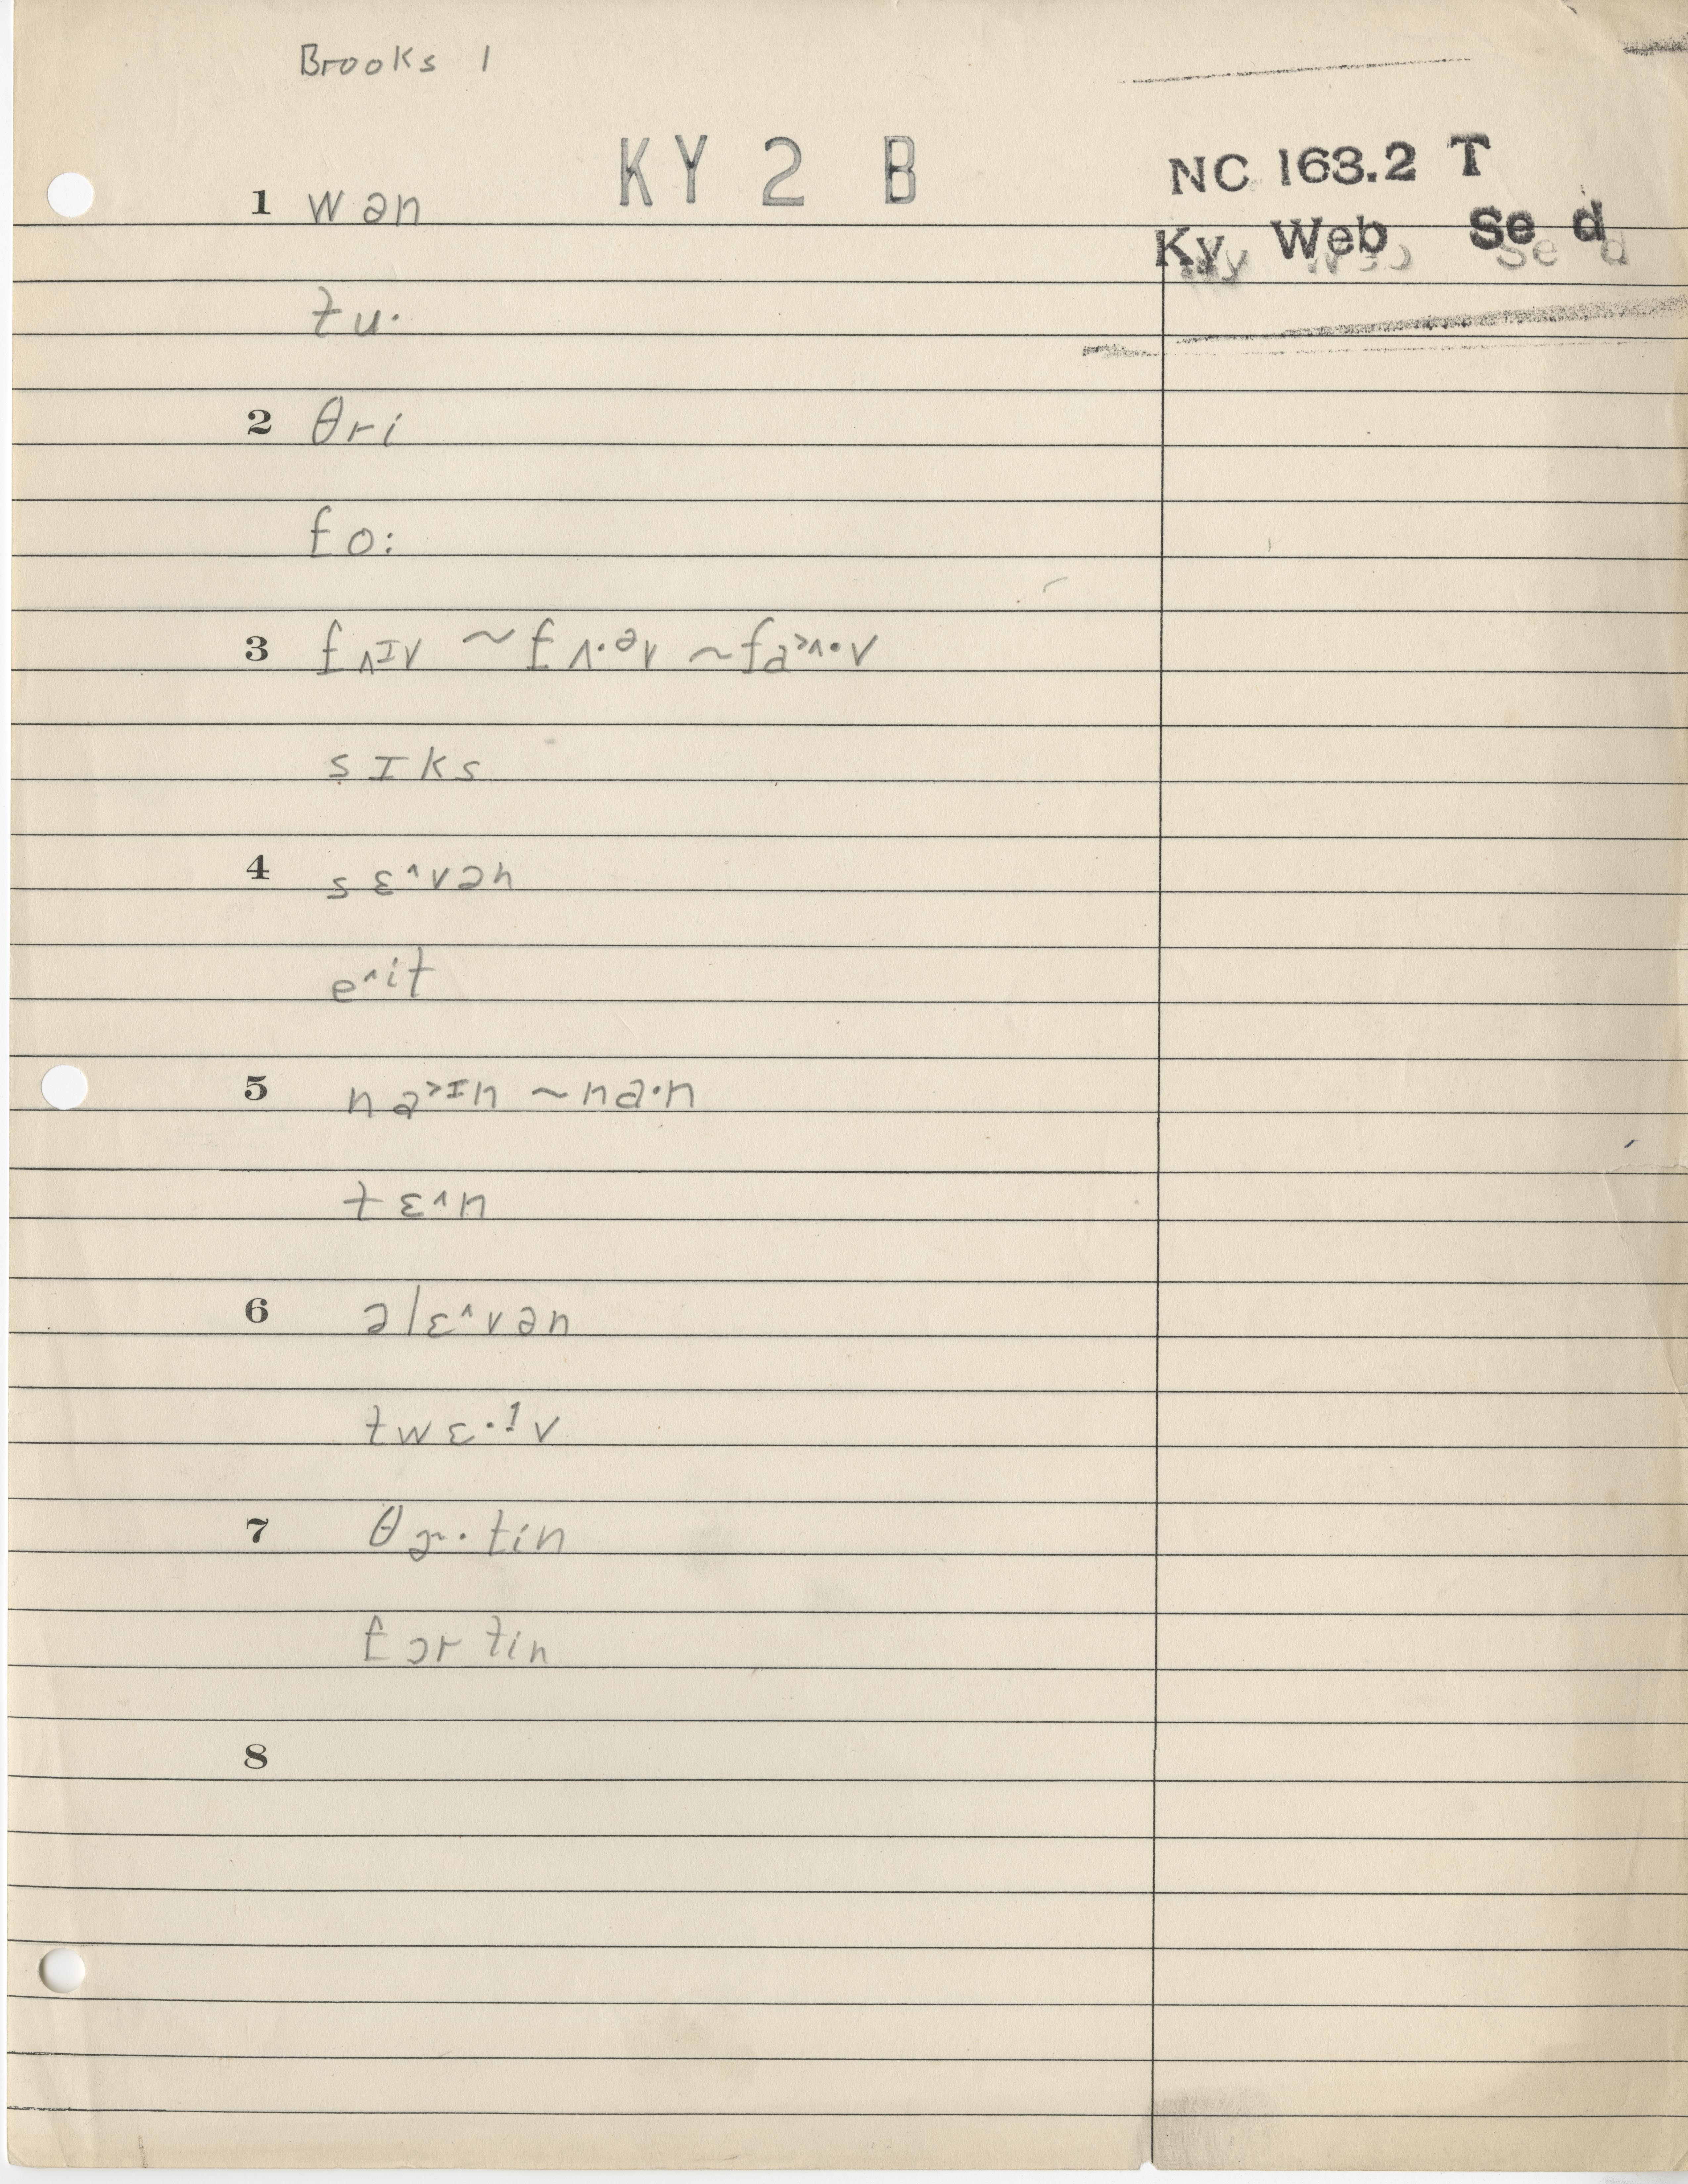 Brooks 1
KY 2 B
NC 163.2 T
Ky Web Se d
1 wən
tu·
2 θri
fo:
3 fʌɪv ~ fʌ·ᵊv ~ fa˃ʌ·v
sɪks
4 sɛ^vən
e^it
5 na˃ɪn ~ na·n
tɛ^n
6 əlɛ^vən
twɛ·l̩v
7 θɚ·tin
fɔrtin
8